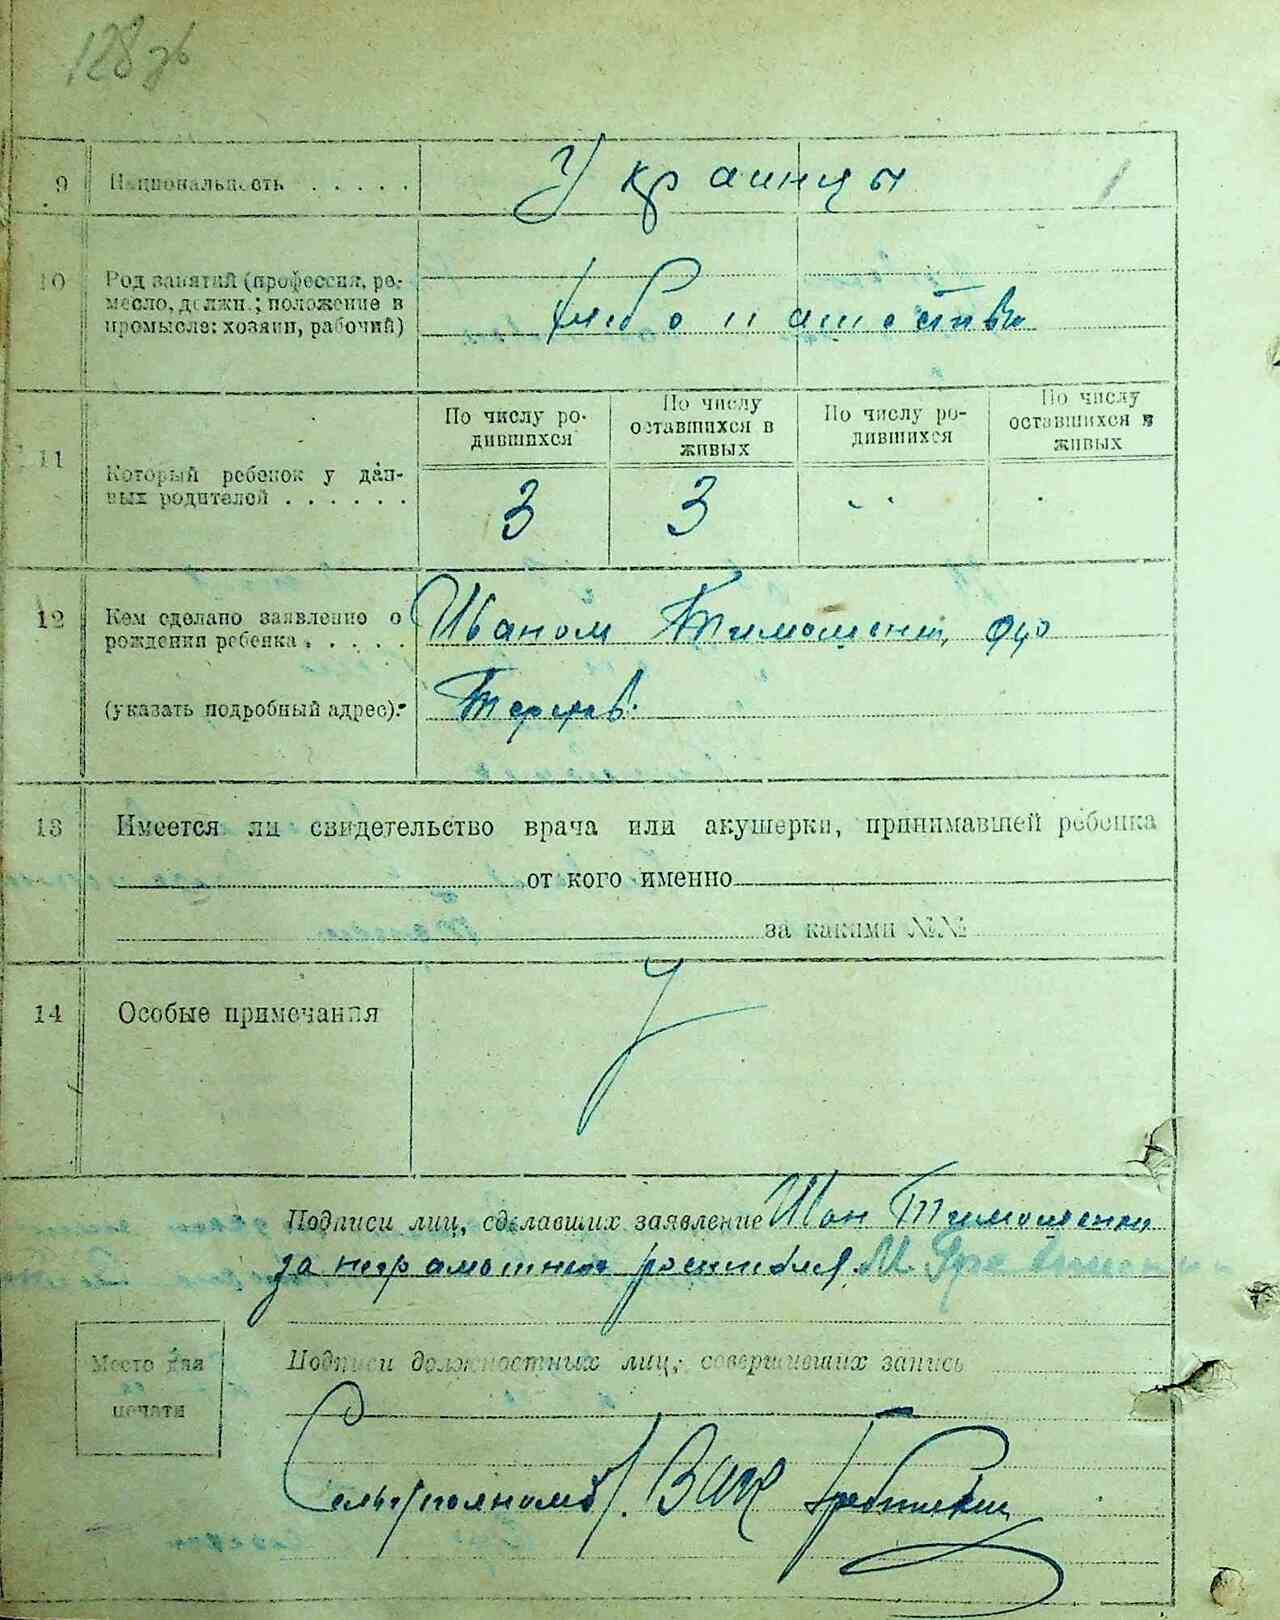 128 зв
9 Национальность . . . . . Украинцы
10 Род занятий (профессия, ре-
месло, должн.; положение в
промысле: хозяин, рабочий)
хлебопашество
По числу ро-
дившихся
По числу
оставшихся в
живых
По числу ро-
дившихся
По числу
оставшихся в
живых
11 Который ребенок у дан-
ных родителей . . . . . .
3 3
12 Кем сделано заявление о
рождении ребенка . . . . .
Иваном Тимошенко,
(указать подробный адрес).
13 Имеется ли свидетельство врача или акушерки, принимавшей ребенка
от кого именно
за какими №№
14 Особые примечания
Подписи лиц, сделавших заявление Иван Тимошенко
за неграмотного росписался М.
Место для
печати
Подписи должностных лиц, совершивших запись